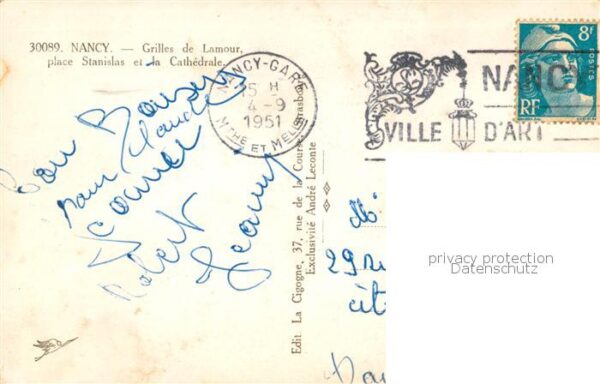 30089. NANCY. — Grilles de Lamour,
place Stanislas et la Cathédrale.
NANCY-GARE
15 H
4-9
1951
MTHE ET MELLE
NANCY
VILLE D'ART
8F
POSTES
RF
Bon Baiser
pour
Robert
Jeanny
Edit La Cigogne, 37, rue de la Course, Strasbourg
Exclusivité André Leconte
29
privacy protection
Datenschutz